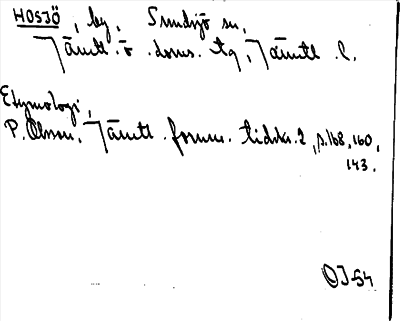 HOSJÖ, by, Sundsjö sn,
Jämtl. ö. doms. tg, Jämtl. l.
Etymologi,
P. Olsson, Jämtl. fornm. tidskr. 2, s. 168, 160,
143.
OJ-54